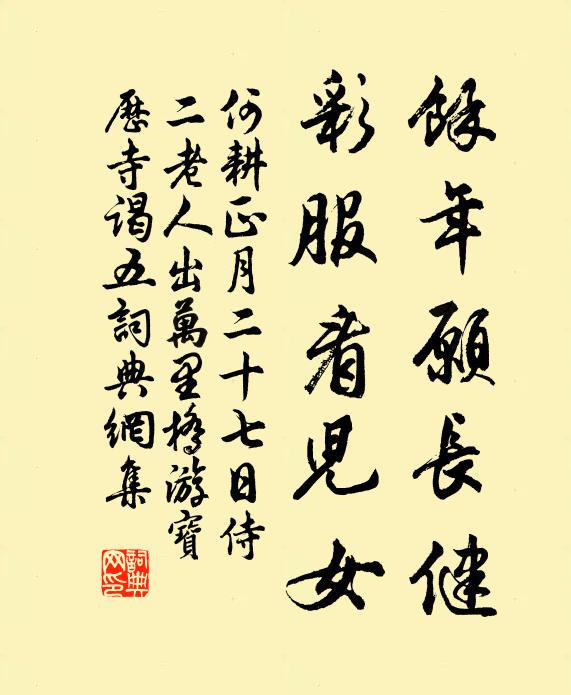 餘年願長健
彩服看兒女
何耕正月二十七日侍
二老人出萬里橋游寶
歷寺謁五詞典網集
詞典
网印